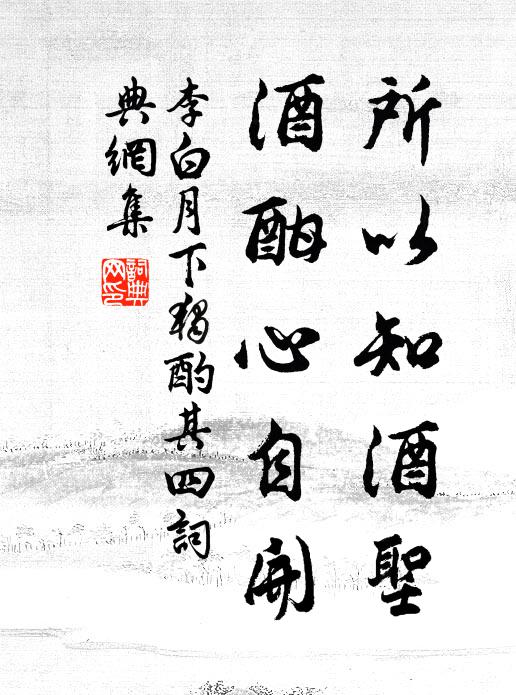 所以知酒聖
酒酣心自開
李白月下獨酌其四詞
典網集
詞典
网印